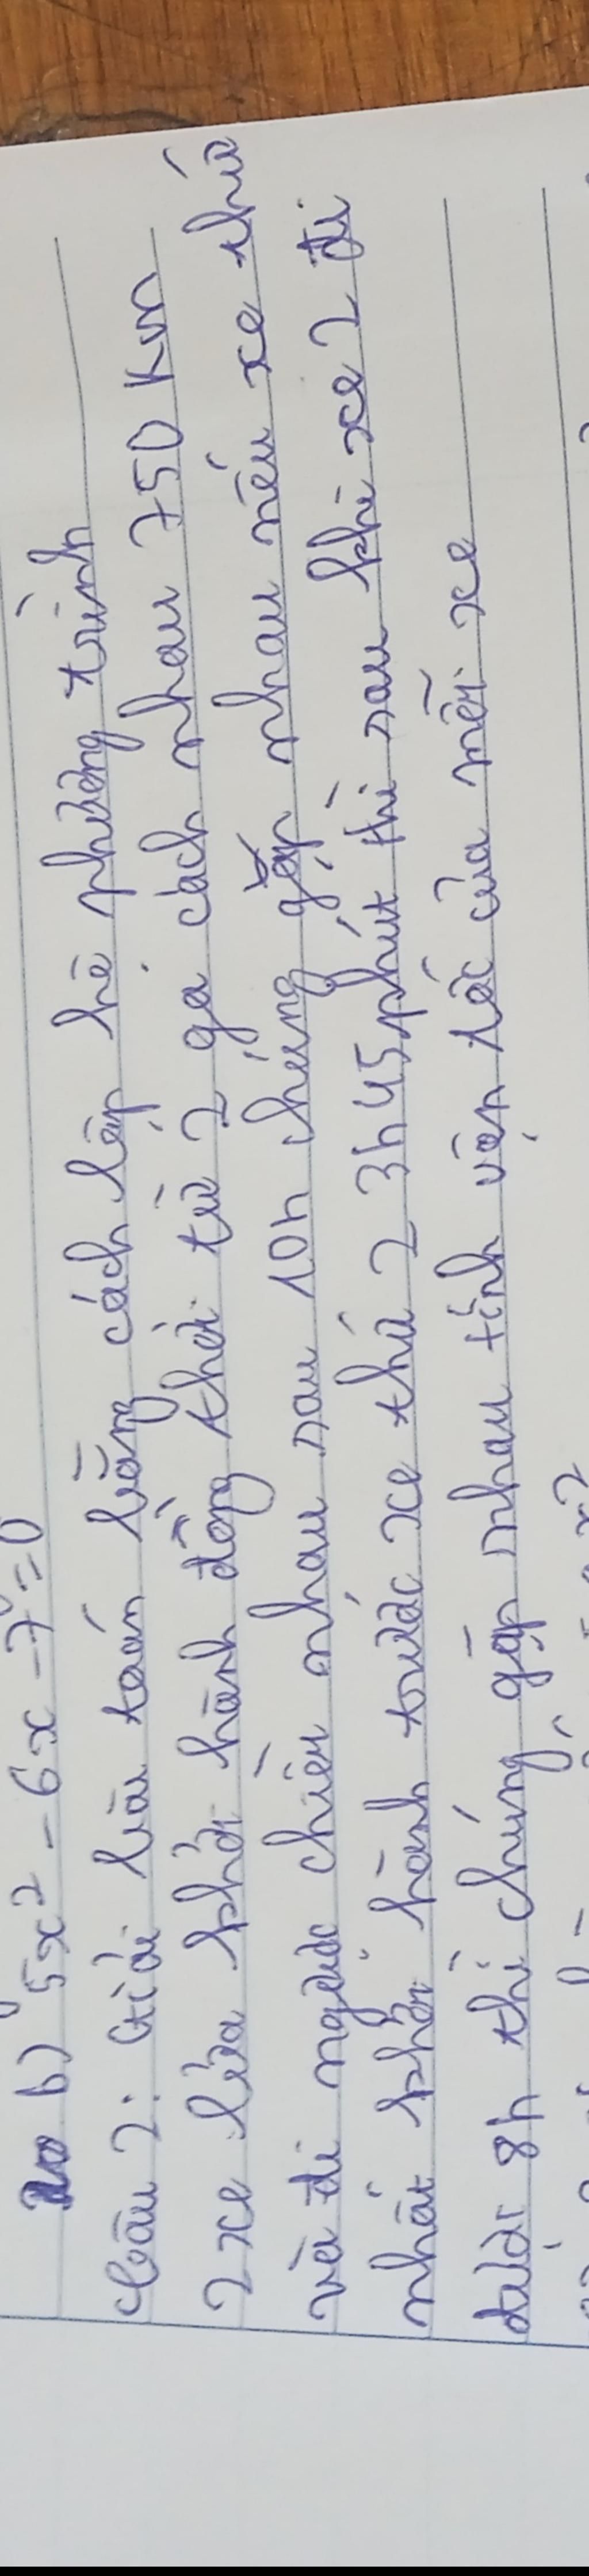 b) 5x² - 6x - 7 = 0
Câu 2: Giải bài toán bằng cách lập hệ phương trình
2 xe lửa khởi hành đồng thời từ 2 ga cách nhau 750 Km
và đi ngược chiều nhau sau 10h chúng gặp nhau nếu xe thứ
nhất khởi hành trước xe thứ 2 3h45 phút thì sau khi xe 2 đi
được 8h thì chúng gặp nhau tính vận tốc của mỗi xe